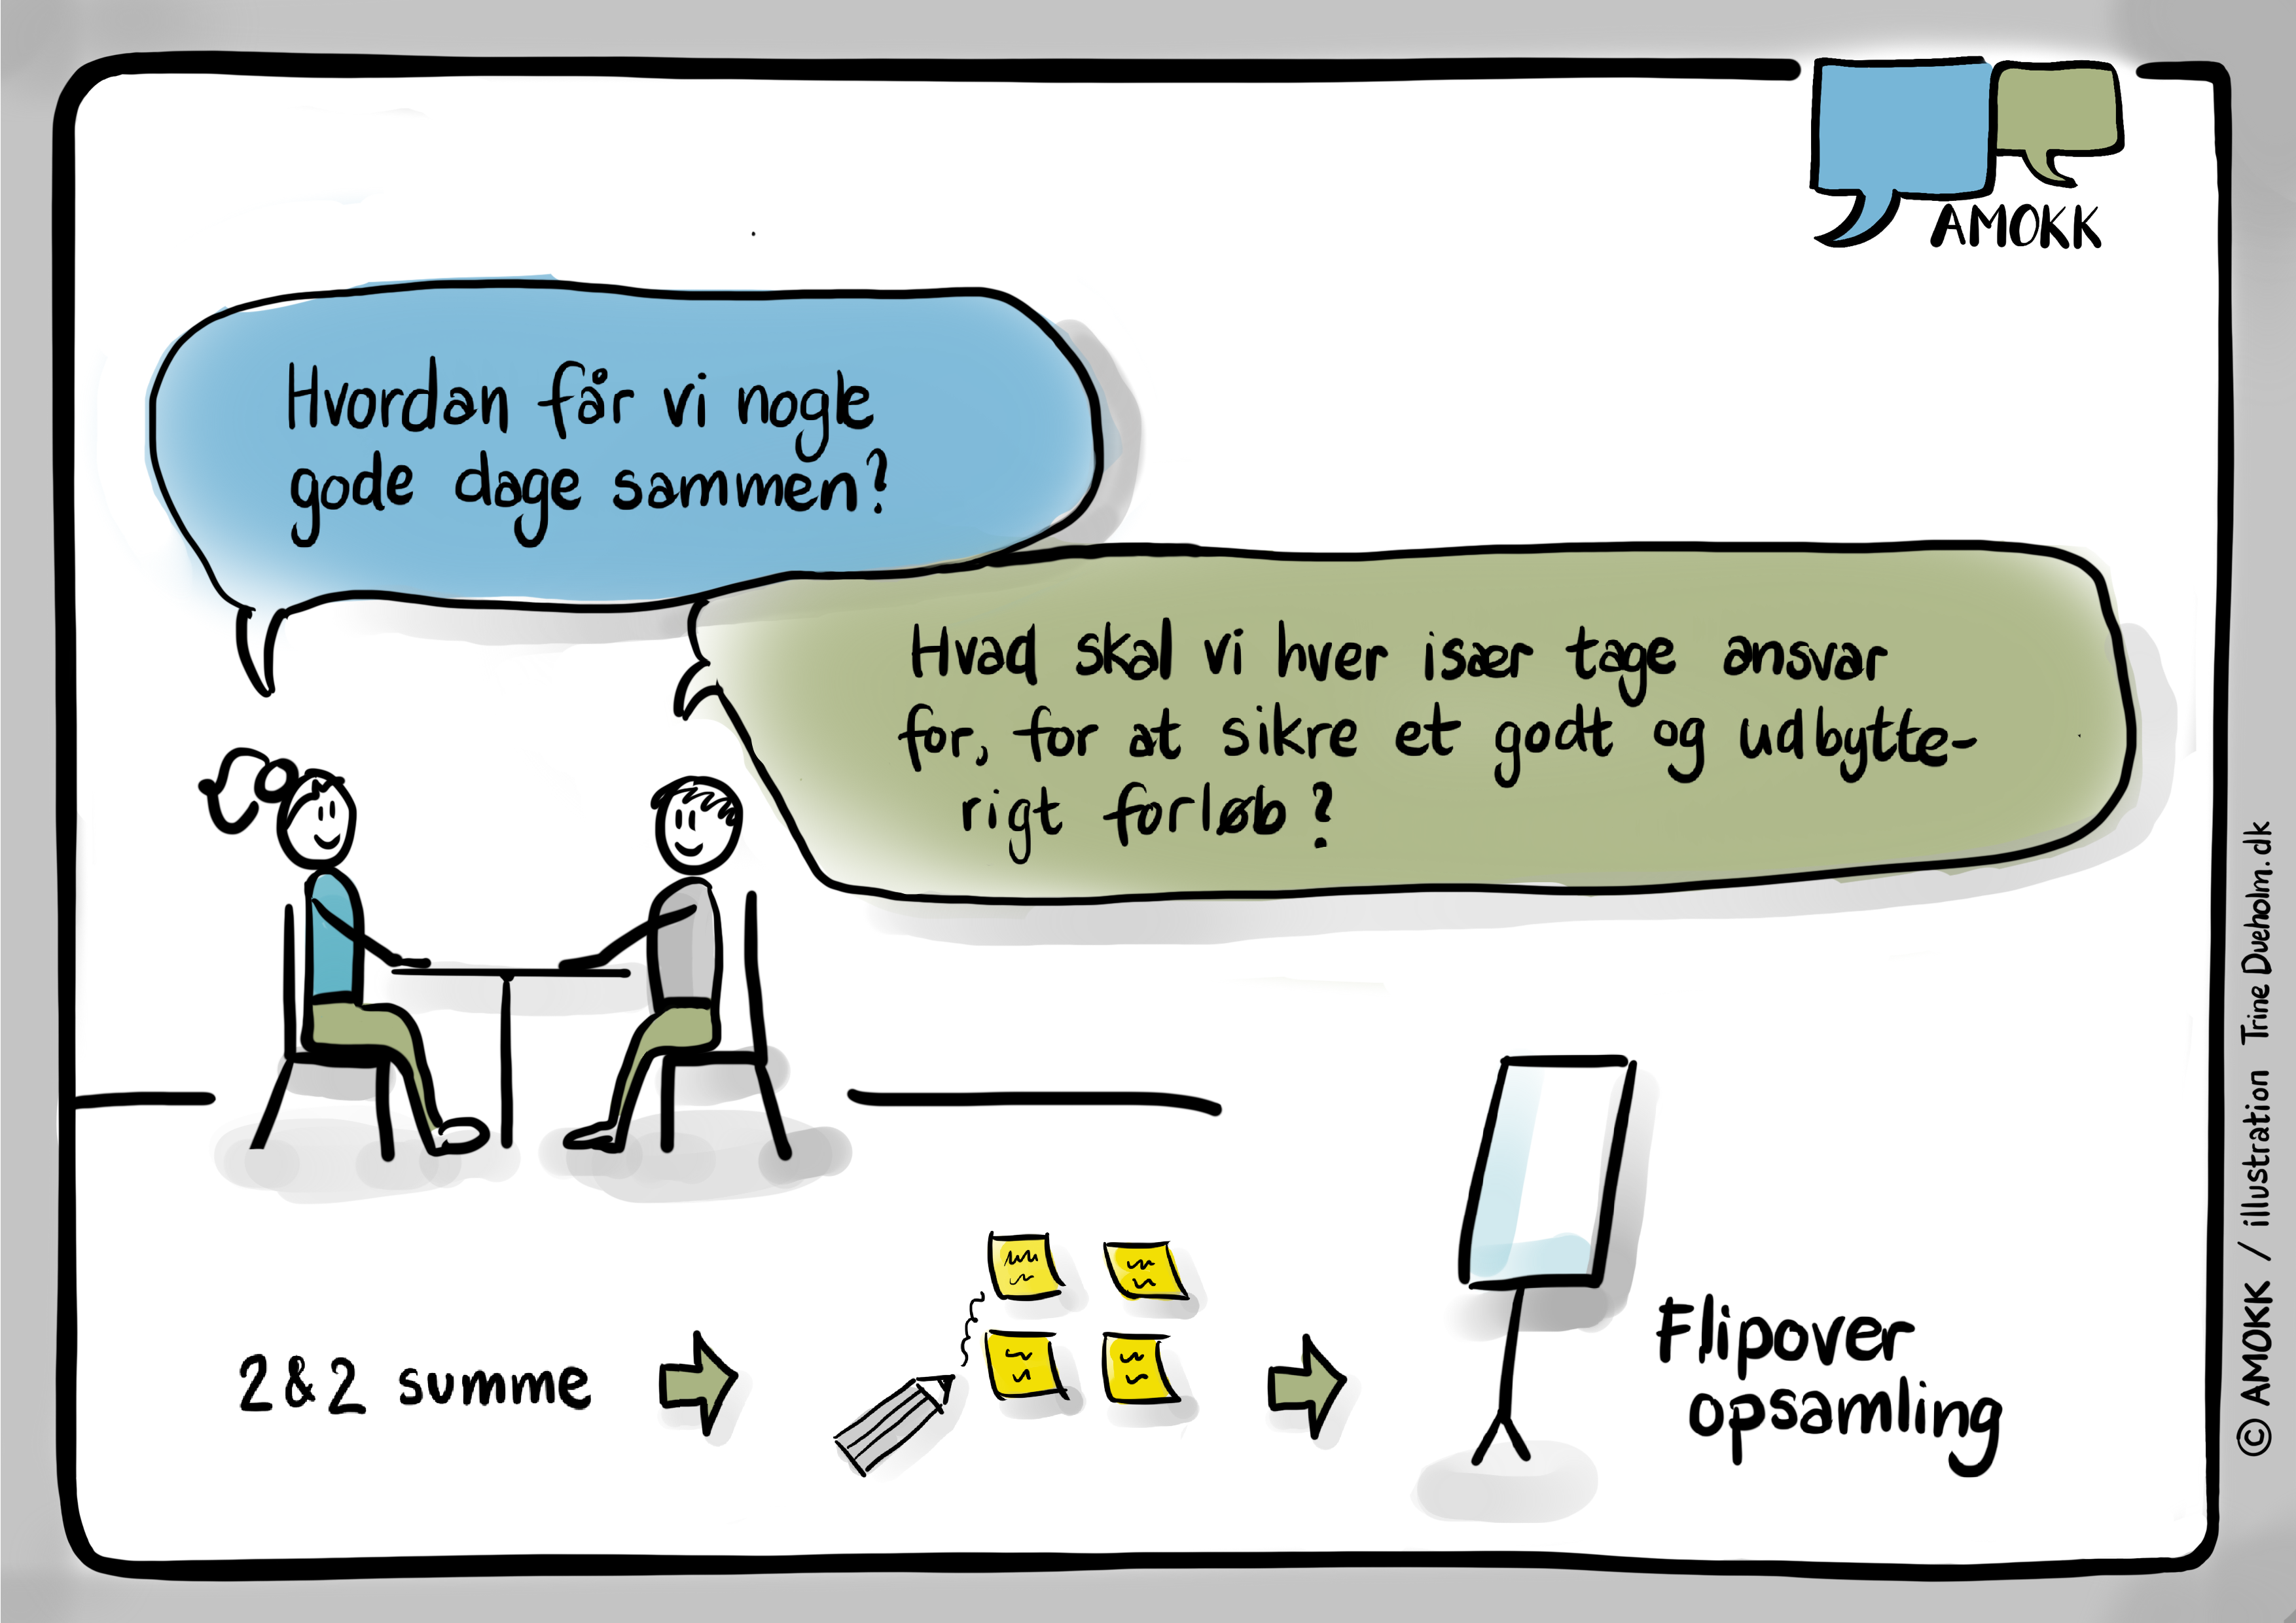 AMOKK
Hvordan får vi nogle
gode dage sammen?
Hvad skal vi hver især tage ansvar
for, for at sikre et godt og udbytte-
rigt forløb?
2&2 summe
Flipover
opsamling
© AMOKK / illustration Trine Dueholm.dk